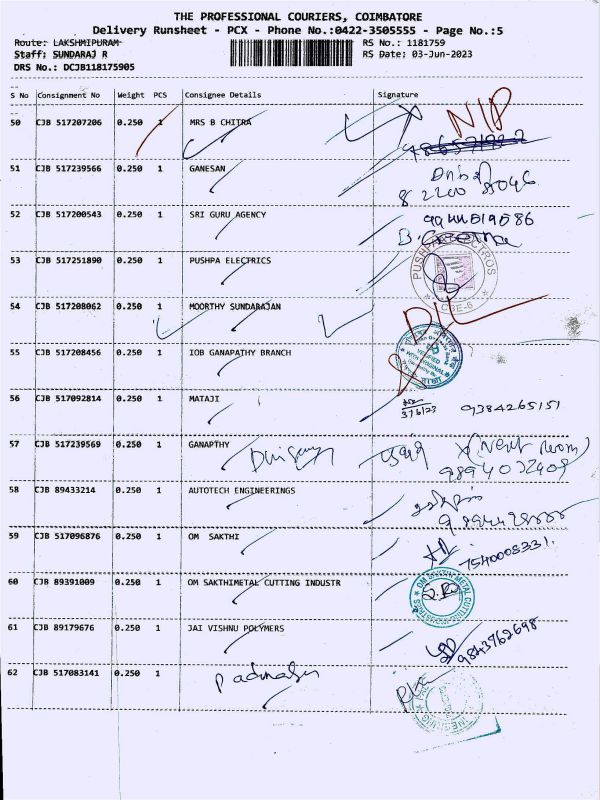 THE PROFESSIONAL COURIERS, COIMBATORE
Delivery Runsheet - PCX - Phone No.:0422-3505555 - Page No.:5
Route: LAKSHMIPURAM
RS No.: 1181759
Staff: SUNDARAJ R
RS Date: 03-Jun-2023
DRS No.: DCJB118175905
S No Consignment No Weight PCS Consignee Details Signature
50 CJB 517207206 0.250 1 MRS B CHITRA
51 CJB 517239566 0.250 1 GANESAN
52 CJB 517200543 0.250 1 SRI GURU AGENCY
B. Geetha
53 CJB 517251890 0.250 1 PUSHPA ELECTRICS
PUSHPA ELECTROS
CBE-6
54 CJB 517208062 0.250 1 MOORTHY SUNDARAJAN
D/L
55 CJB 517208456 0.250 1 IOB GANAPATHY BRANCH
VERIFIED WITH ORIGINAL
56 CJB 517092814 0.250 1 MATAJI
3/6/23 9384265151
57 CJB 517239569 0.250 1 GANAPTHY
(Next room)
58 CJB 89433214 0.250 1 AUTOTECH ENGINEERINGS
59 CJB 517096876 0.250 1 OM SAKTHI
7540008331.
60 CJB 89391009 0.250 1 OM SAKTHIMETAL CUTTING INDUSTR
OM SAKTHI METAL CUTTING INDUSTRIES
61 CJB 89179676 0.250 1 JAI VISHNU POLYMERS
9843962698
62 CJB 517083141 0.250 1